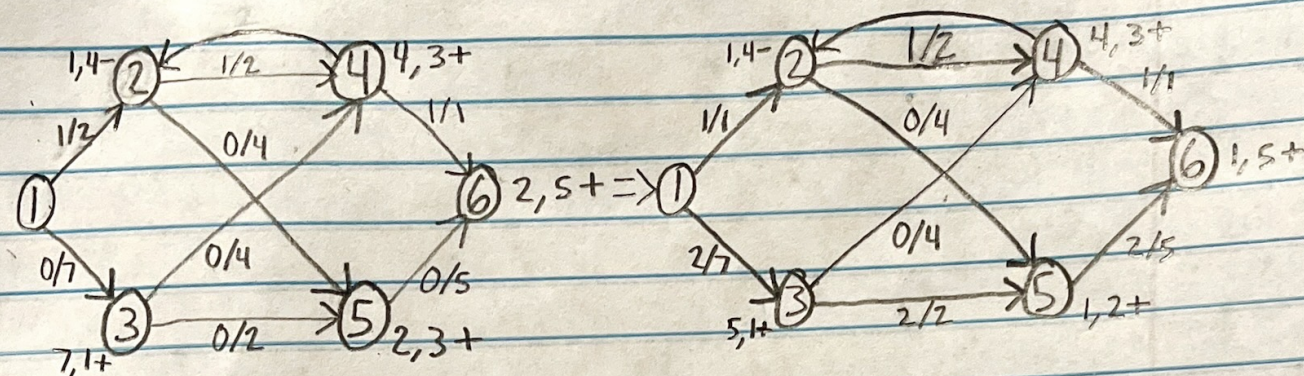 1,4- 2 1/2 4 4,3+
1/2 0/4 1/1
1 6 2,5+ =>
0/7 0/4 0/5
3 0/2 5 2,3+
7,1+
1,4- 2 1/2 4 4,3+
1/1 0/4 1/1
1 6 1,5+
2/7 0/4 2/5
3 2/2 5 1,2+
5,1+